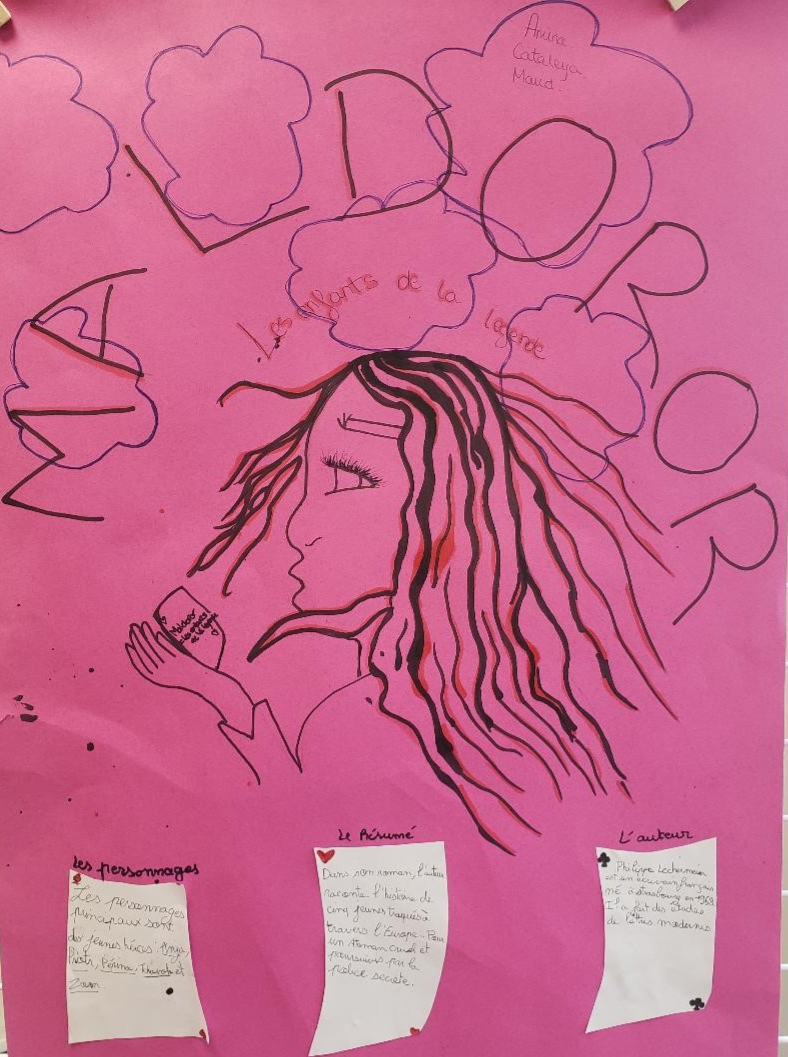 Anina
Cataleya
Maud.
MALDOROR
Les enfants de la légende
Maldoror
les enfants
de la légende
Les personnages
Les personnages
principaux sont
des jeunes héros:
Piotr, Périna, et
Zoran
Le Résumé
Dans son roman, l'auteur
raconte l'histoire de
cinq jeunes traqués à
travers l'Europe.. Par
un Roman cruel et
poursuivis par la
police secrète.
L'auteur
Philippe Lechermeier
est un écrivain français
né à Strasbourg en 1968
Il a fait des études
de lettres modernes